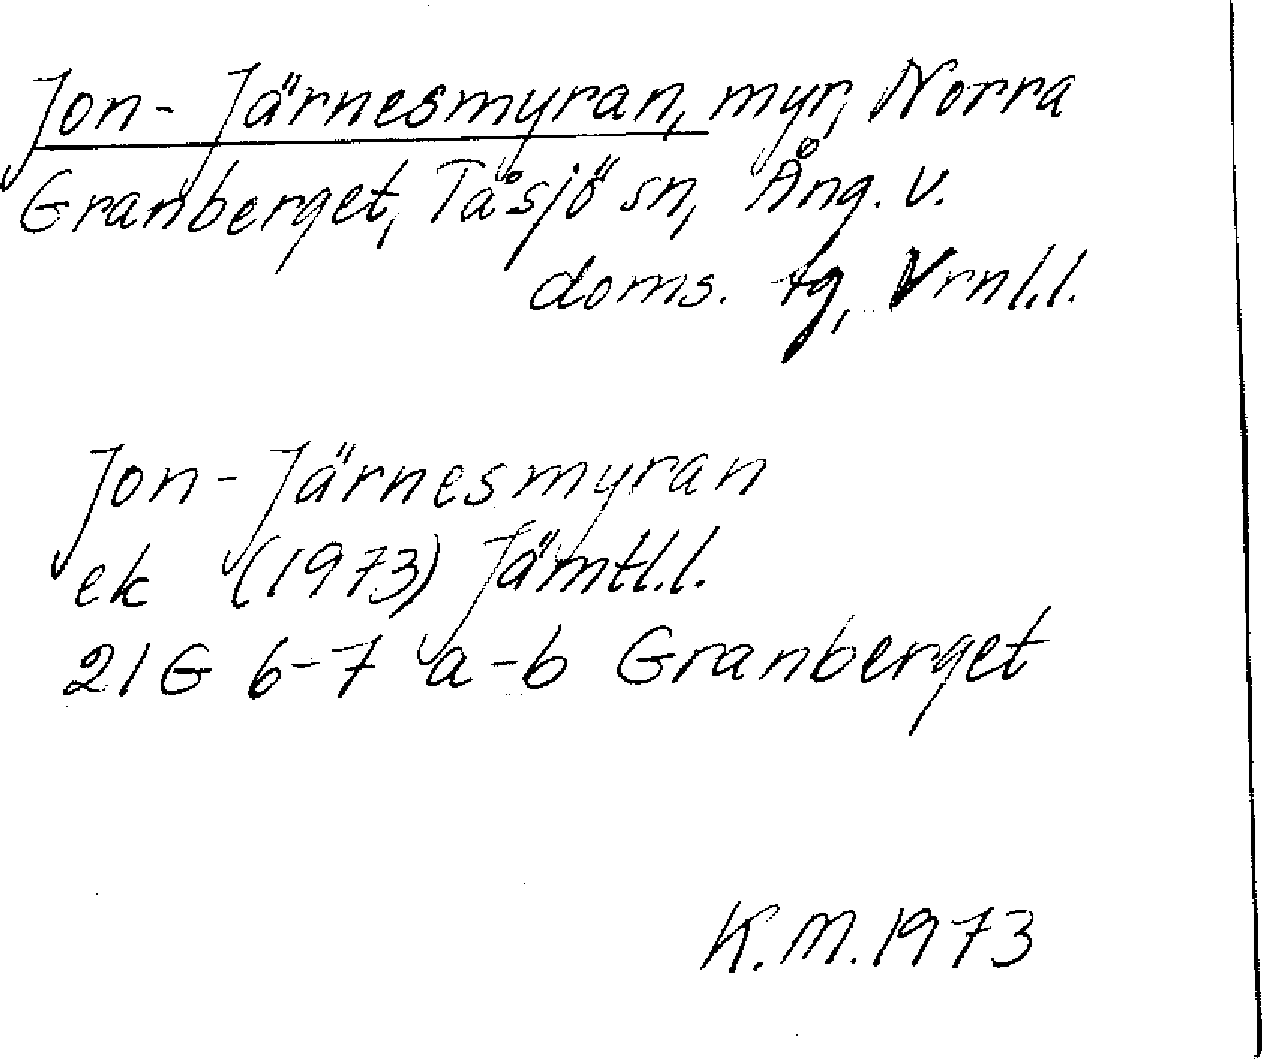 Jon-Järnesmyran, myr, Norra
Granberget, Tåsjö sn, Ång. v.
doms. tg, Vrnl.l.
Jon-Järnesmyran
ek (1973) Jämtl.l.
21G 6-7 a-b Granberget
K.M. 1973